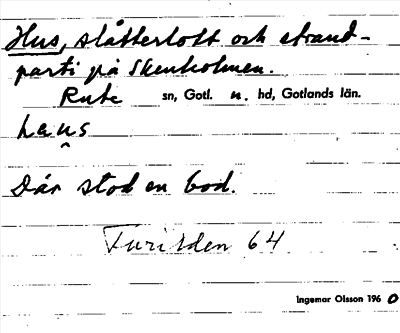 Hus, slåtterlott och strand-
parti på Skenholmen.
Rute sn, Gotl. n. hd, Gotlands län.
haus
Där stod en bod.
64
Ingemar Olsson 1960